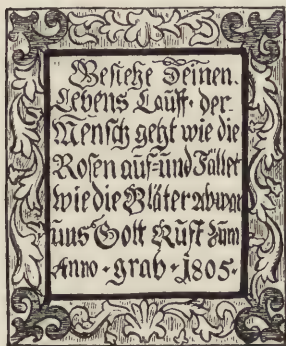 Besiehe Deinen
Lebens Lauff. der
Mensch geht wie die
Rosen auf-und Fället
wie die Bläter
uns Gott Ruft Zum
Anno - grab - 1805.